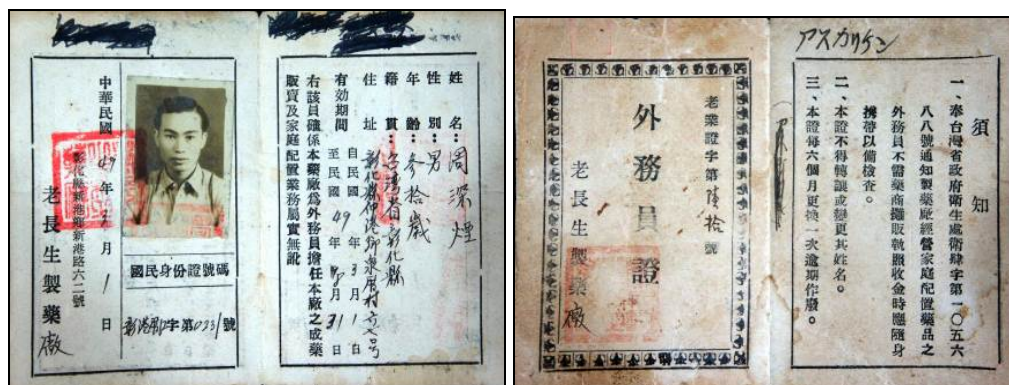 姓名：周深煙
性別：男
年齡：參拾歲
籍貫：台灣省彰化縣
住址：彰化縣伸港鄉泉厝村
有効期間 自民國49年3月1日
至民國49年8月31日
右該員確係本藥廠爲外務員擔任本廠之成藥
販賣及家庭配置業務屬實無訛
國民身份證號碼
字第0231號
中華民國49年3月1日
彰化縣新港鄉新港路六二號
老長生製藥廠
アスカリケン
須知
一、奉台灣省政府衛生處衛肆字第一〇五六
八八號通知製藥廠經營家庭配置藥品之
外務員不需藥商攤販執照收金時應隨身
携帶以備檢查。
二、本證不得轉讓或變更其姓名。
三、本證每六個月更換一次逾期作廢。
老藥證字第陸拾號
外務員證
老長生製藥廠